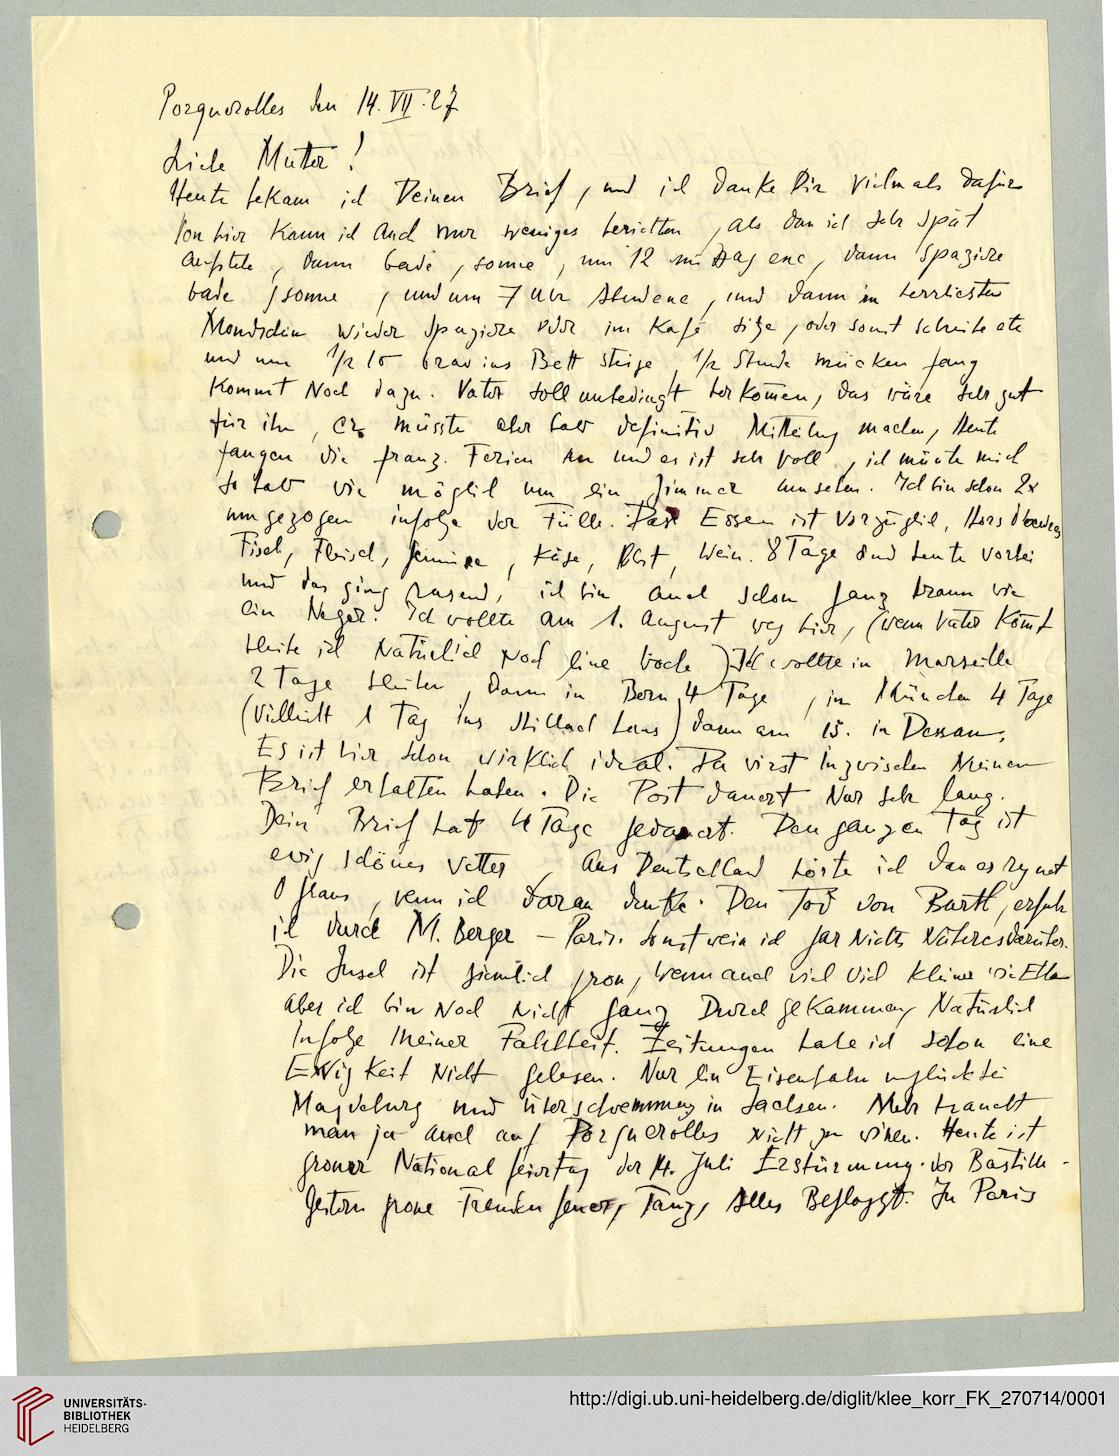 Porquerolles den 14.VII.27
Liebe Mutter!
Heute bekam ich Deinen Brief, und ich danke Dir vielmals dafür
Von hier kann ich auch nur weniges berichten, als dass ich sehr spät
aufstehe, dann bade, sonne, um 12 mittag esse, dann spaziere
bade, sonne, und um 7 Uhr Abendesse, und dann im herrlichsten
Mondschein wieder spaziere oder im Kafé sitze, oder sonst schreibe etc
und um 1/2 10 brav ins Bett steige, 1/2 Stunde mückenfang
kommt noch dazu. Vater soll unbedingt herkommen, das wäre sehr gut
für ihn, er müsste aber bald definitiv Mitteilung machen, Heute
fangen die franz. Ferien an und es ist sehr voll, ich müsste mich
so bald wie möglich um ein Zimmer umsehen. Ich bin schon 2x
umgezogen infolge der Fülle. Das Essen ist vorzüglich, Hors d'oeuvres
Fisch, Fleisch, Gemüse, Käse, Obst, Wein. 8 Tage sind heute vorbei
und das ging rasend, ich bin auch schon ganz braun wie
ein Neger. Ich wollte am 1. August weg hier, (wenn Vater kommt
bleibe ich natürlich noch eine Woche) Ich wollte in Marseille
2 Tage bleiben, dann in Bern 4 Tage, in München 4 Tage
(vielleicht 1 Tag ins Stillachhaus) dann am 15. in Dessau.
Es ist hier schon wirklich ideal. Du wirst inzwischen Meinen
Brief erhalten haben. Die Post dauert nur sehr lang.
Dein Brief hat 4 Tage gedauert. Den ganzen Tag ist
ewig schönes Wetter, aus Deutschland hörte ich dass es regnet
O graus, wenn ich daran denke. Den Tod von Barth, erfuhr
ich durch M. Berger – Paris. Sonst weiss ich gar nichts Näheres darüber.
Die Insel ist ziemlich gross, wenn auch viel viel kleiner wie Elba
aber ich bin noch nicht ganz durchgekommen, natürlich
infolge meiner Faulheit. Zeitungen habe ich schon eine
Ewigkeit nicht gelesen. Nur ein Eisenbahnunglück bei
Magdeburg und überschwemmung in Sachsen. Mehr braucht
man ja auch auf Porquerolles nicht zu wissen. Heute ist
grosser National feiertag der 14. Juli Erstürmung der Bastille.
Gestern grosse Freudenfeuer, Tanz, Alles Beflaggt. In Paris
UNIVERSITÄTS-
BIBLIOTHEK
HEIDELBERG
http://digi.ub.uni-heidelberg.de/diglit/klee_korr_FK_270714/0001